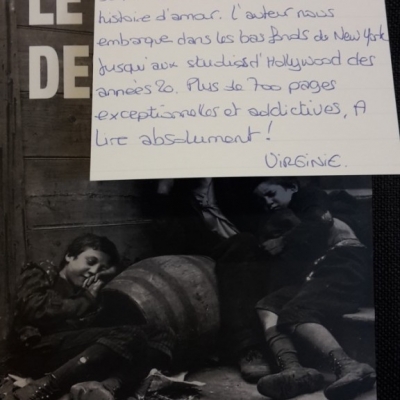 LE
DE
histoire d'amour. L'auteur nous
embarque dans les bas fonds de New York
jusqu'aux studios d'Hollywood des
années 20. Plus de 700 pages
exceptionnelles et addictives, A
lire absolument!
VIRGINIE.